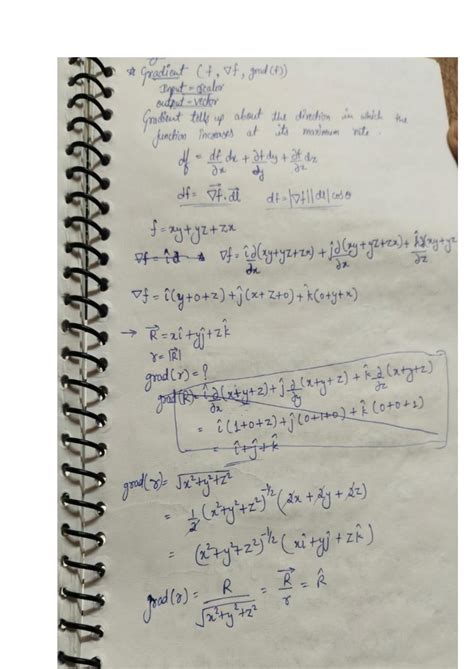 * Gradient (f, ∇f, grad(f))
Input = scalar
output = vector
Gradient tells up about the direction in which the
function increases at its maximum rite.
df = df/∂x dx + ∂f/dy dy + ∂f/∂z dz
df = ∇f⃗.dl⃗ df = |∇f||dl|cosθ
f = xy+yz+zx
∇f = î∂ ∇f = î∂(xy+yz+zx)/∂x + ĵ∂(xy+yz+zx)/∂x + k̂∂(xy+yz/∂z
∇f = î(y+0+z)+ĵ(x+z+0)+k̂(0+y+x)
→ R⃗ = xî+yĵ+zk̂
r = |R⃗|
grad(r) = ?
grad(R) = î ∂/∂x (x+y+z) + ĵ ∂/∂y (x+y+z) + k̂ ∂/∂z (x+y+z)
= î(1+0+z)+ĵ(0+1+0)+k̂(0+0+1)
= î+ĵ+k̂
grad(r) = √x²+y²+z²
= 1/2 (x²+y²+z²)^-1/2 (2x+2y+2z)
= (x²+y²+z²)^-1/2 (xî+yĵ+zk̂)
grad(r) = R/√x²+y²+z² = R⃗/r = R̂